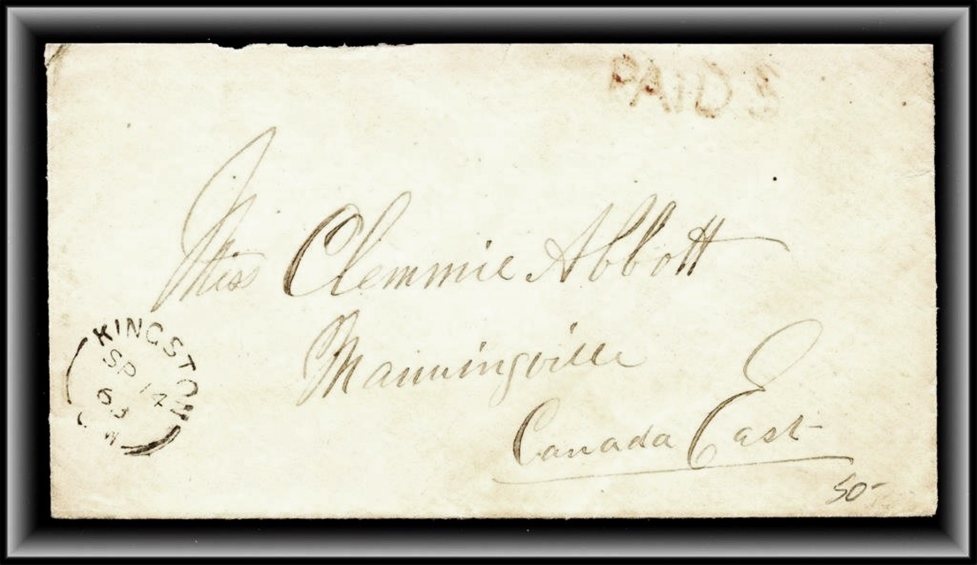 PAID 3
Miss Clemmie Abbott
Manningville
Canada East
50-
KINGSTON
SP 14
63
C.W